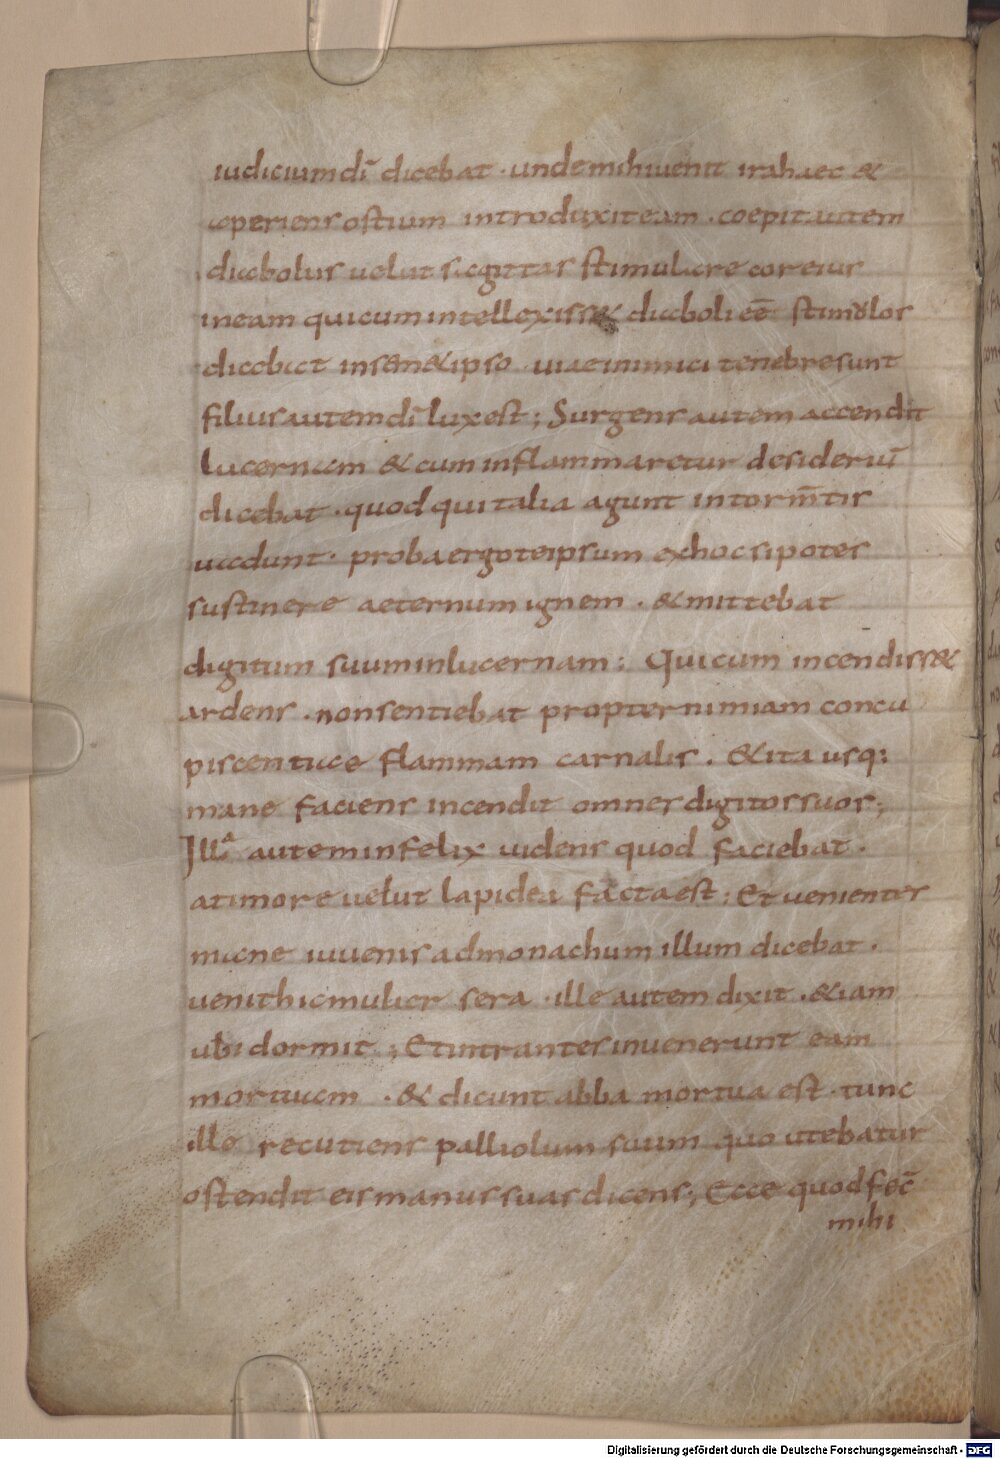 iudicium dī dicebat · unde mihi uenit ira haec &
aperiens ostium introduxit eam · coepit autem
diabolus uelut sagittas stimulare cor eius
in eam qui cum intellexiss& diaboli eē stimulos
dicebat in sem&ipso · uiae inimici tenebre sunt
filius autem dī lux est ; Surgens autem accendit
lucernam & cum inflammaretur desideriū
dicebat · quod qui talia agunt in torm̄tis
uadunt · proba ergo te ipsum ex hoc si potes
sustinere aeternum ignem · & mittebat
digitum suum in lucernam ; Qui cum incendiss&
ardens · non sentiebat propter nimiam concu
piscentiae flammam carnalis . & ita usq;
mane faciens incendit omnes digitos suos ;
Illa autem infelix uidens quod faciebat .
a timore uelut lapidea facta est ; Et uenientes
mane iuuenis ad monachum illum dicebat .
uenit hic mulier sera · ille autem dixit . & iam
ubi dormit ; Et intrantes inuenerunt eam
mortuam . & dicunt abba mortua est · tunc
ille recutiens palliolum suum quo utebatur
ostendit eis manus suas dicens ; Ecce quod fec̄
mihi
Digitalisierung gefördert durch die Deutsche Forschungsgemeinschaft - DFG